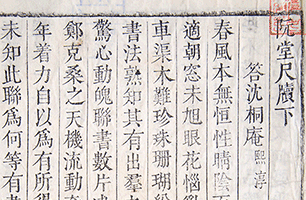 阮堂尺牘下
答沈桐庵熙淳
春風本無恒性晴陰
適朝窓未旭眼花惱
車渠木難珍珠珊瑚
書法熟知其有出羣
驚心動魄聯書數片
鄭克桑之天機流動
年着力自以爲有所得
未知此聯爲何等有書